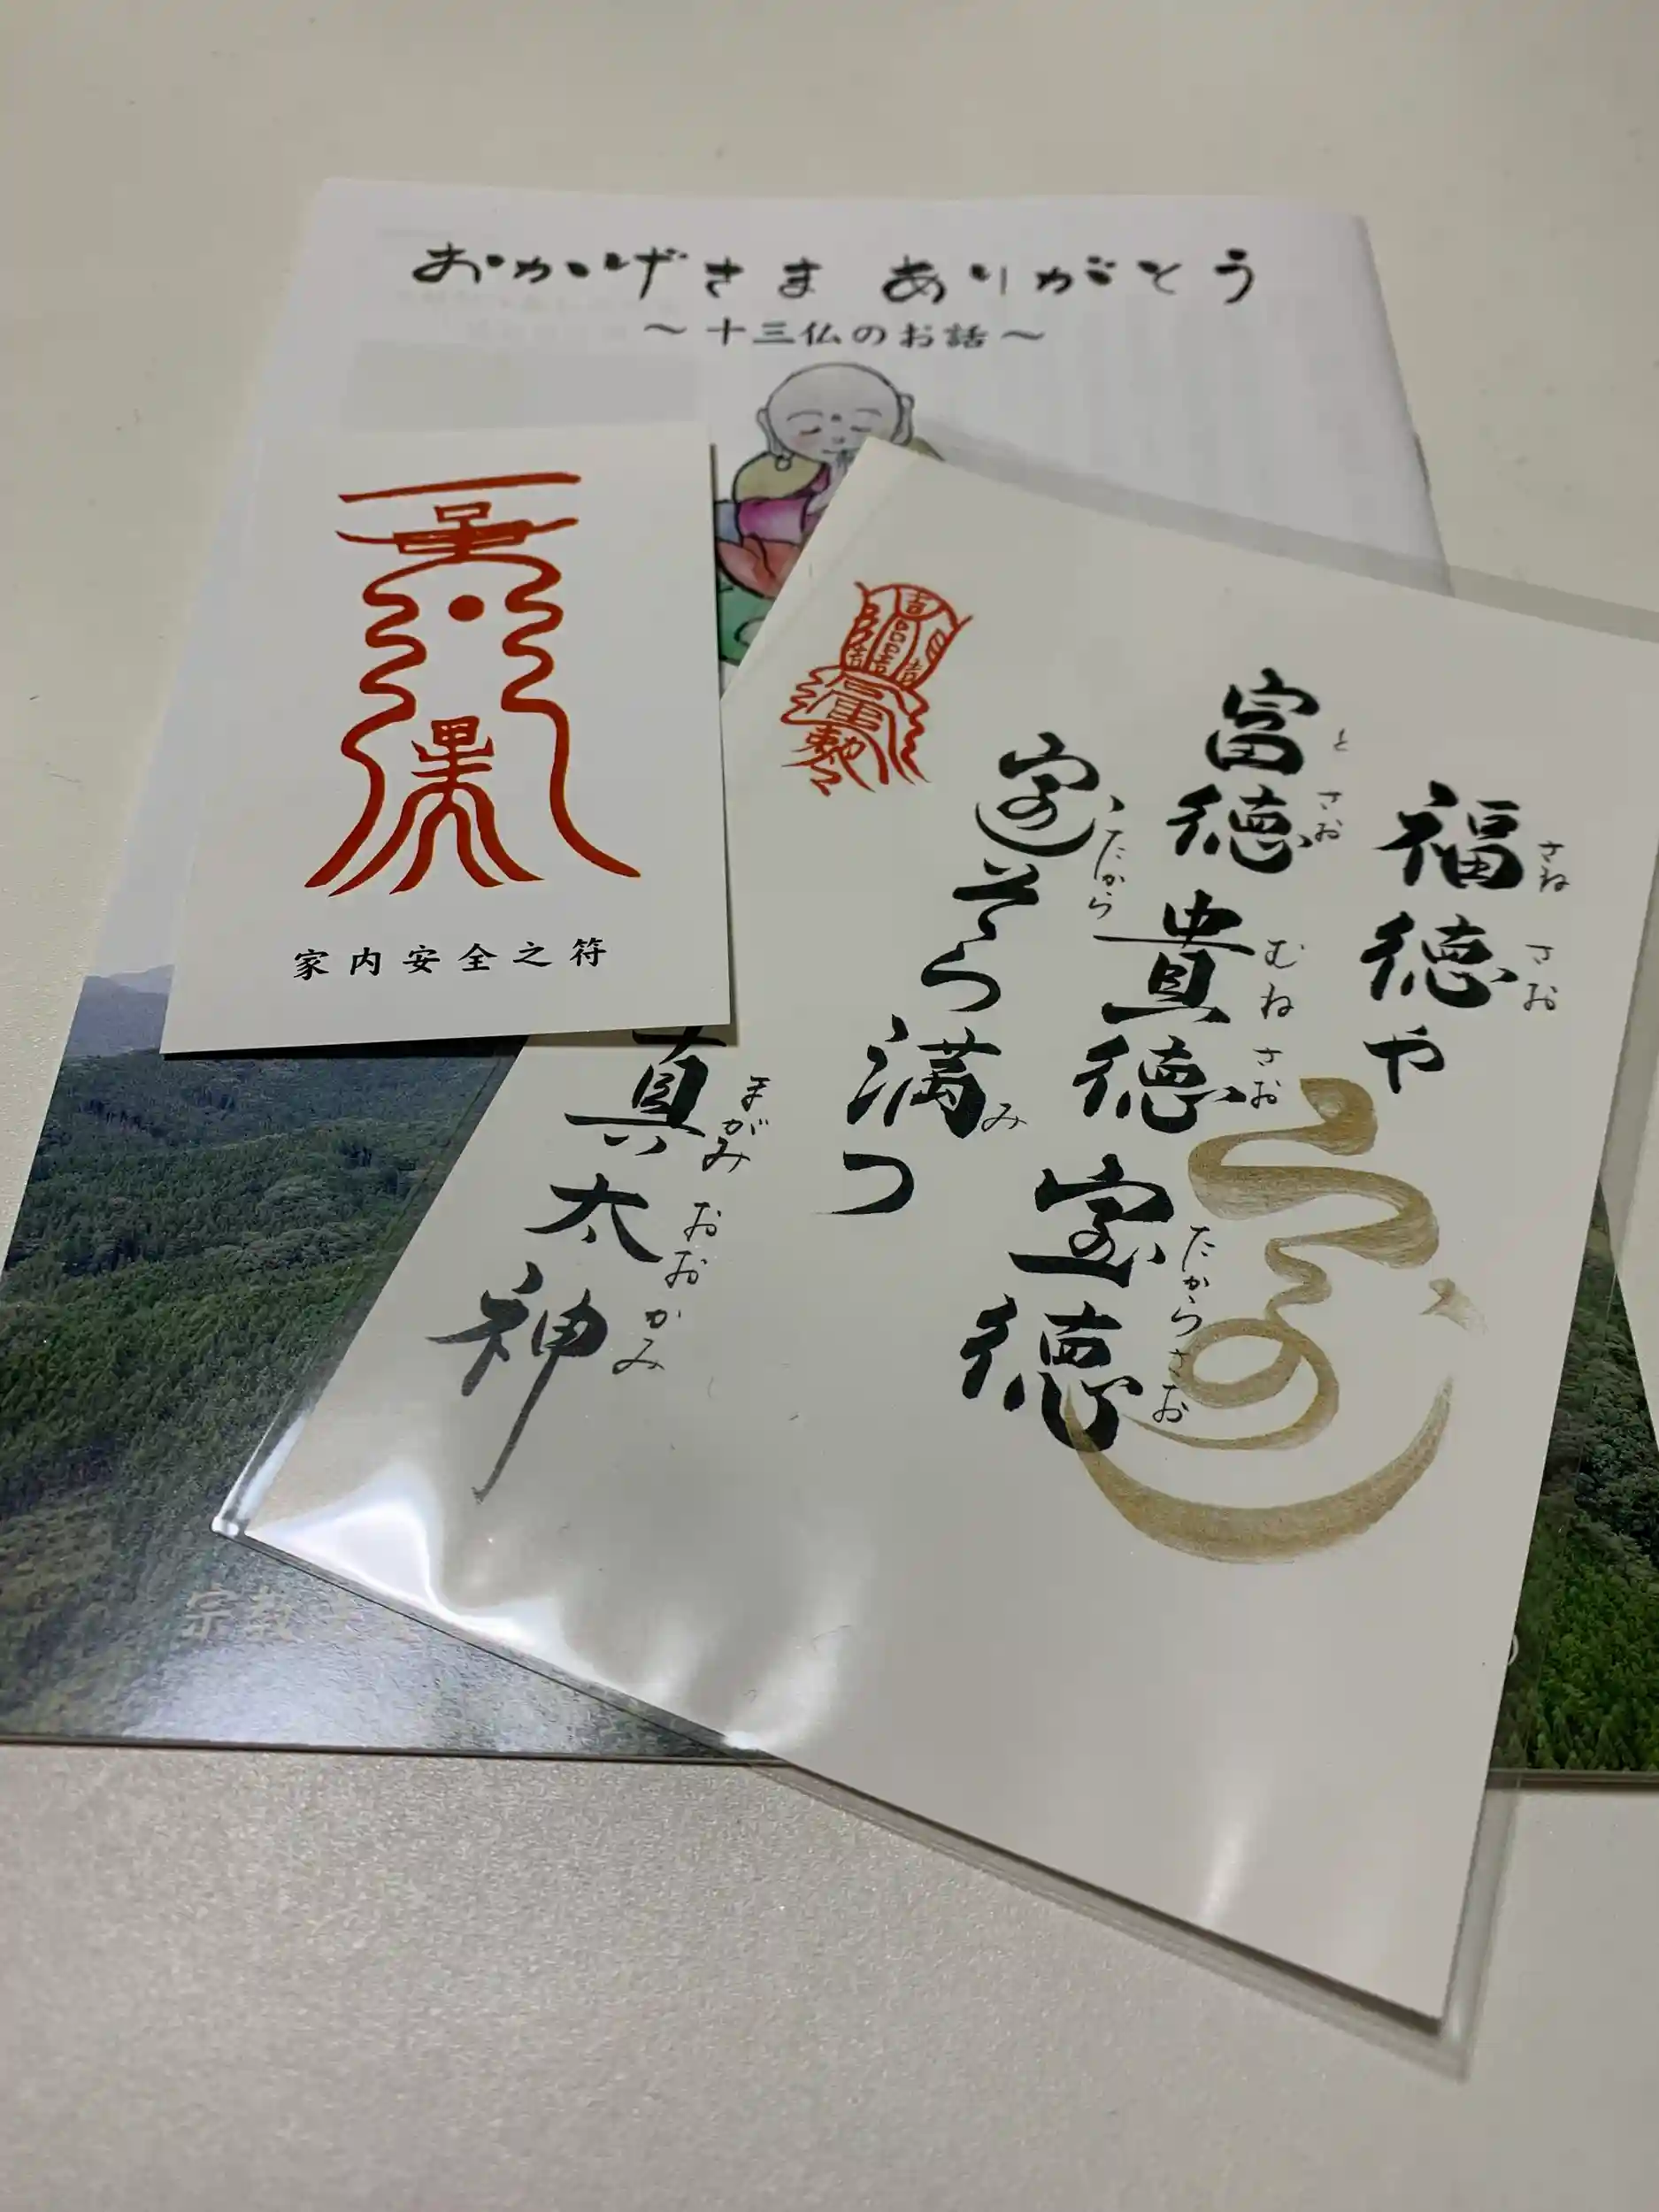 おかげさま ありがとう
～十三仏のお話～
家内安全之符
福徳や
さね
さお
富徳貴徳宝徳
と
さお
むね
さお
たから
さお
満つ
たから
み
真太神
まがみ
おお
かみ
宗教